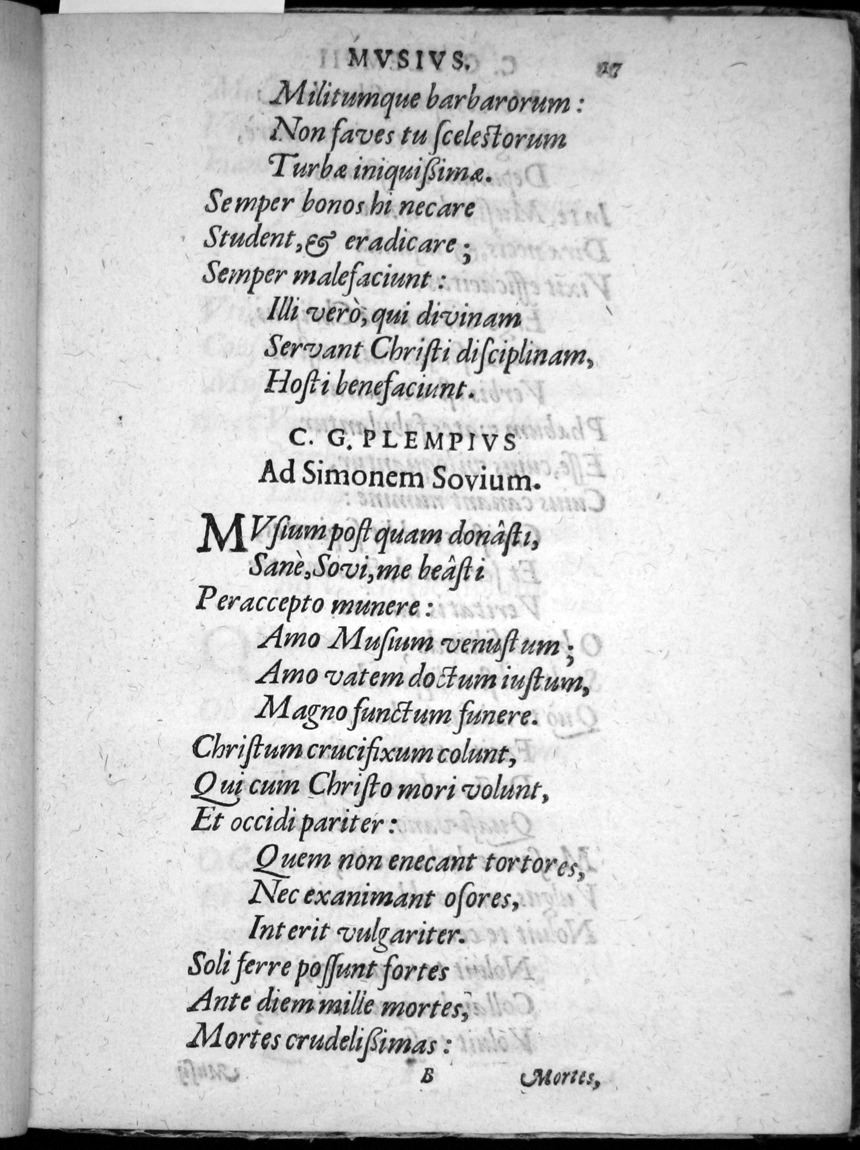 MVSIVS. 17
Militumque barbarorum :
Non faves tu ſceleſtorum
Turbæ iniquiſſimæ.
Semper bonos hi necare
Student, & eradicare ;
Semper malefaciunt :
Illi verò, qui divinam
Servant Chriſti diſciplinam,
Hoſti benefaciunt.
C. G. PLEMPIVS
Ad Simonem Sovium.
MVſium poſt quam donâſti,
Sanè, Sovi, me beâſti
Peraccepto munere :
Amo Muſium venuſtum ;
Amo vatem doctum iuſtum,
Magno functum funere.
Chriſtum crucifixum colunt,
Qui cum Chriſto mori volunt,
Et occidi pariter :
Quem non enecant tortores,
Nec exanimant oſores,
Interit vulgariter.
Soli ferre poſſunt fortes
Ante diem mille mortes,
Mortes crudeliſſimas :
B Mortes,